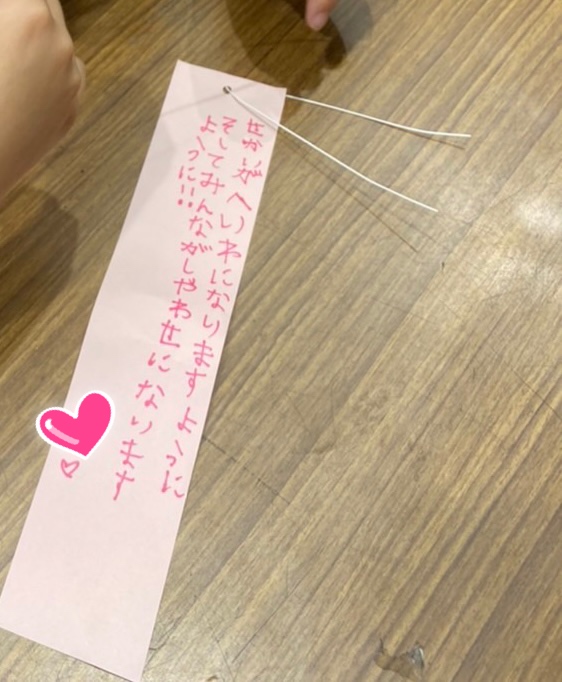 せかいがへいわになりますように
そしてみんながしやわせになります
ように!!